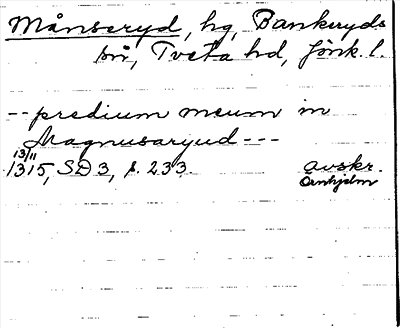 Månseryd, hg, Bankeryds
sn, Tveta hd, Jönk. l.
-- predium meum in
Magnusaryud ---
13/11
1315, SD 3, s. 233. avskr.
Örnhjelm